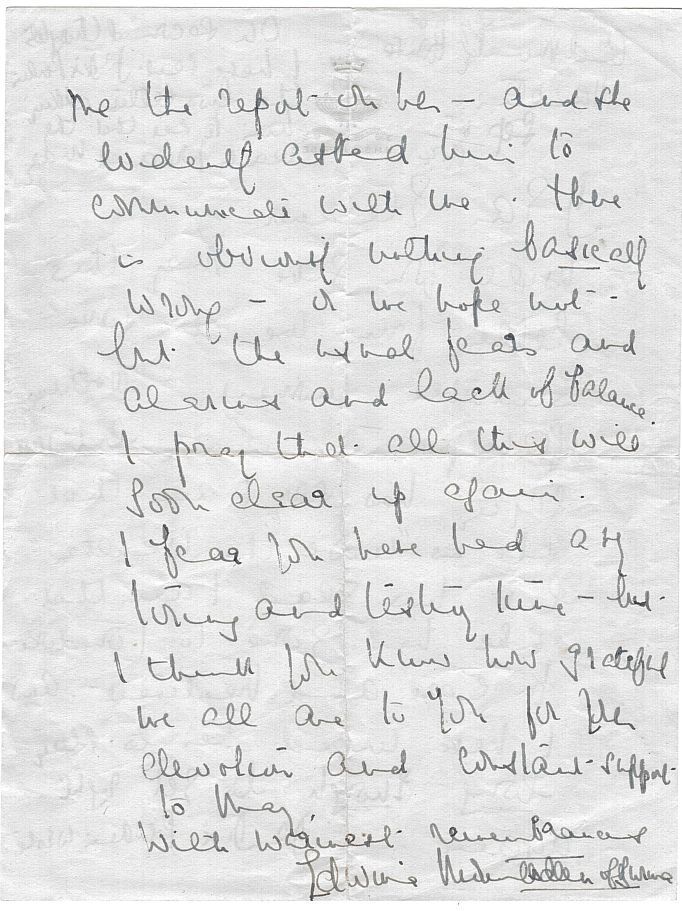 me the report on her – and she
evidently asked him to
communicate with me. There
is obviously nothing basically
wrong – or we hope not –
but the usual fears and
alarms and lack of balance.
I pray that all this will
soon clear up again.
I fear you have had a
tiring and testing time – but
I think you know how grateful
we all are to you for your
devotion and constant support
to Mary.
With warmest remembrances
Edwina Mountbatten of Burma